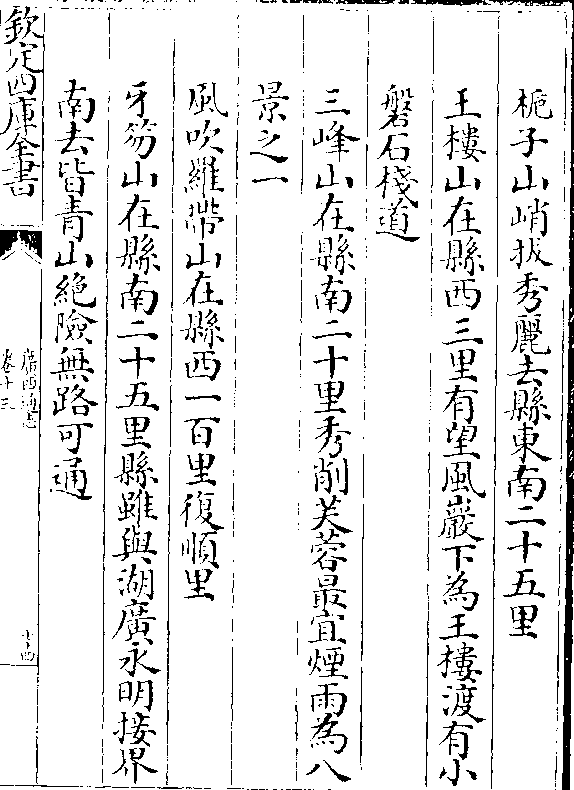 梔子山峭拔秀麗去縣東南二十五里
王樓山在縣西三里有望風巖下為王樓渡有小
磐石棧道
三峰山在縣南二十里秀削芙蓉最宜煙雨為八
景之一
風吹羅帶山在縣西一百里復順里
牙笏山在縣南二十五里縣雖與湖廣永明接界
南去皆青山絶險無路可通
欽定四庫全書
廣西通志
卷十三
十四